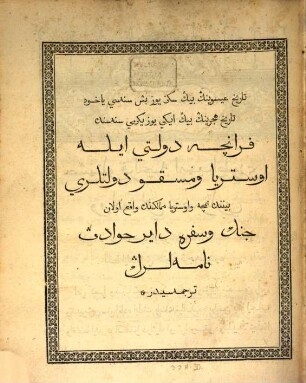 تاريخ عيسونك بيك سكز يوز بش سنه سي ياخود
تاريخ هجرتك بيك ايكي يوز يكرمي سنه سنك
فرانچه دولتي ايله
اوستريا و مسقو دولتلري
بيننده نمچه و اوستريا ممالكنده واقع اولان
جنك و سفره داير حوادث
نامه لرك
ترجمه سيدر